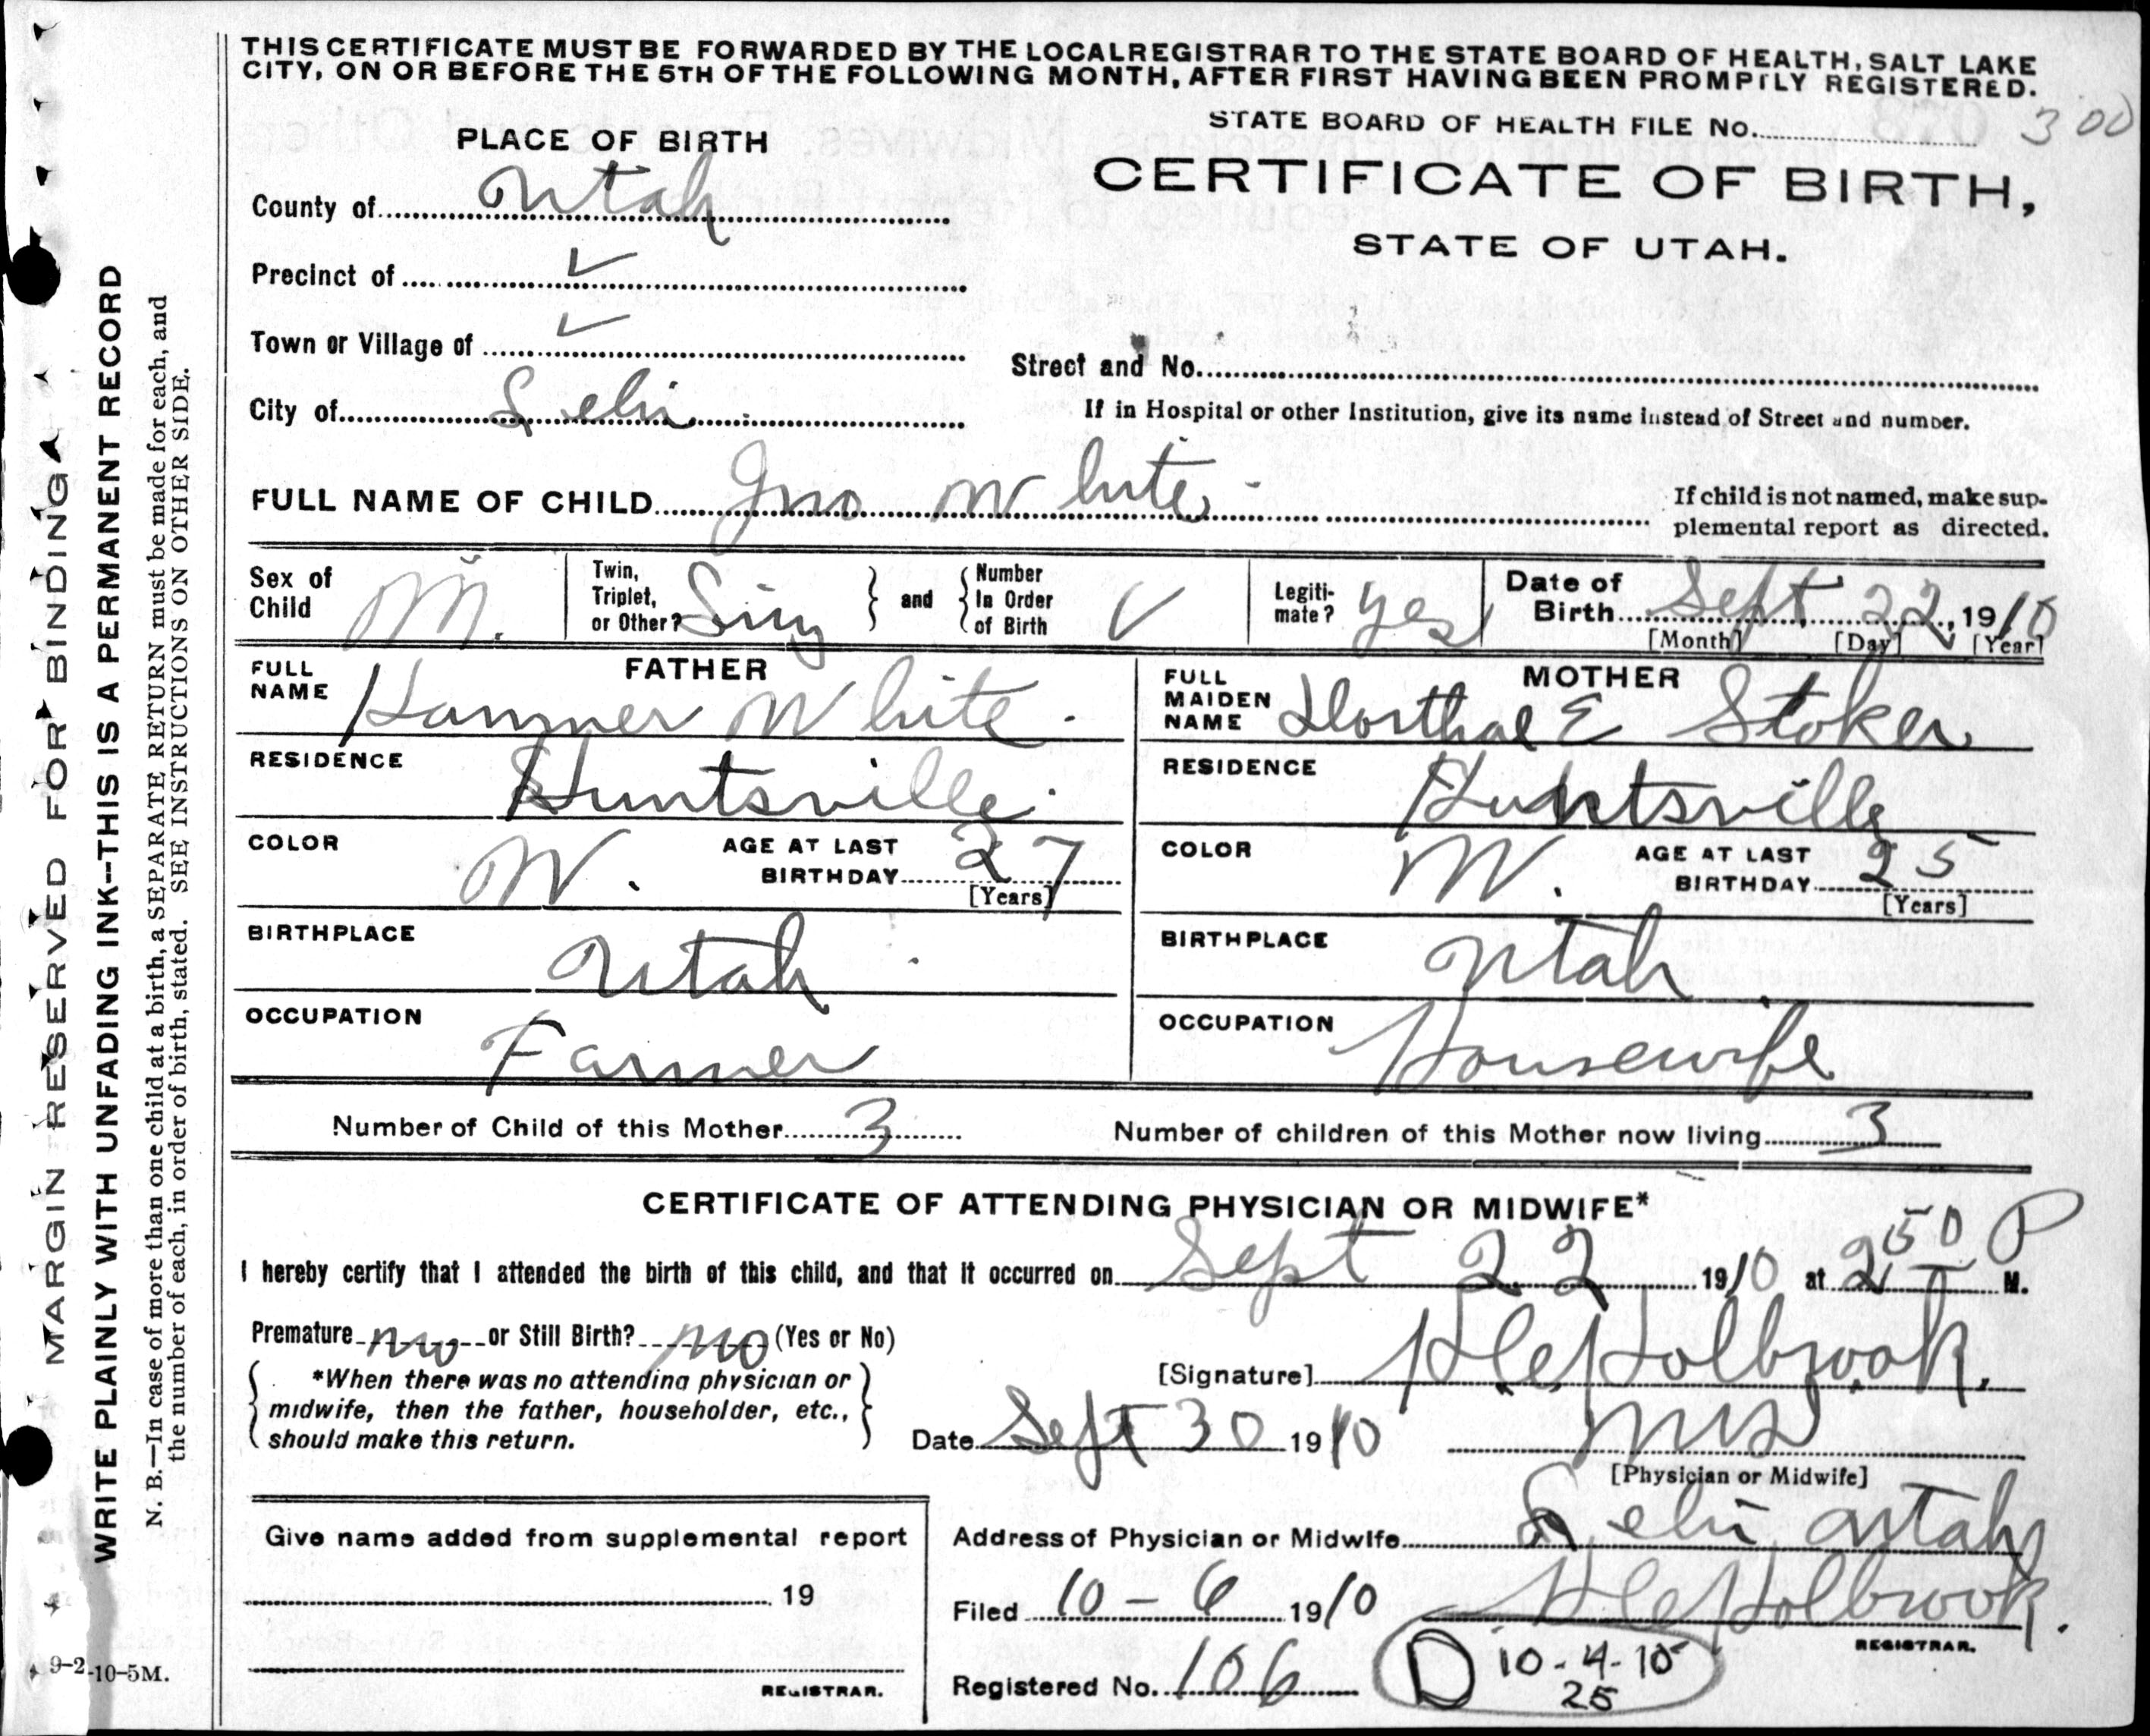 THIS CERTIFICATE MUST BE FORWARDED BY THE LOCAL REGISTRAR TO THE STATE BOARD OF HEALTH, SALT LAKE
CITY, ON OR BEFORE THE 5TH OF THE FOLLOWING MONTH, AFTER FIRST HAVING BEEN PROMPTLY REGISTERED.
STATE BOARD OF HEALTH FILE No. 300
PLACE OF BIRTH
CERTIFICATE OF BIRTH,
STATE OF UTAH.
County of Utah
Precinct of ✓
Town or Village of ✓
Street and No.
City of Lehi
If in Hospital or other Institution, give its name instead of Street and number.
FULL NAME OF CHILD Jno White
If child is not named, make sup-
plemental report as directed.
Sex of Child M.
Twin, Triplet, or Other? Sing
and Number In Order of Birth ✓
Legiti-mate? Yes
Date of Birth Sept 22, 1910
[Month] [Day] [Year]
FATHER
FULL NAME Hammer White
RESIDENCE Huntsville
COLOR W. AGE AT LAST BIRTHDAY 27
[Years]
BIRTHPLACE Utah
OCCUPATION Farmer
MOTHER
FULL MAIDEN NAME E Stoker
RESIDENCE Huntsville
COLOR W. AGE AT LAST BIRTHDAY 25
[Years]
BIRTHPLACE Utah
OCCUPATION Housewife
Number of Child of this Mother 3
Number of children of this Mother now living 3
CERTIFICATE OF ATTENDING PHYSICIAN OR MIDWIFE*
I hereby certify that I attended the birth of this child, and that it occurred on Sept 22 1910 at 2 50 P M.
Premature no or Still Birth? no (Yes or No)
*When there was no attending physician or
midwife, then the father, householder, etc.,
should make this return.
[Signature] Holbrook.
Date Sept 30 1910
MD
[Physician or Midwife]
Give name added from supplemental report
19
REGISTRAR.
Address of Physician or Midwife Lehi Utah
Filed 10-6 1910 Holbrook.
REGISTRAR.
Registered No. 106
D 10-4-10
25
MARGIN RESERVED FOR BINDING
WRITE PLAINLY WITH UNFADING INK--THIS IS A PERMANENT RECORD
N. B.—In case of more than one child at a birth, a SEPARATE RETURN must be made for each, and
the number of each, in order of birth, stated. SEE INSTRUCTIONS ON OTHER SIDE.
9-2-10-5M.